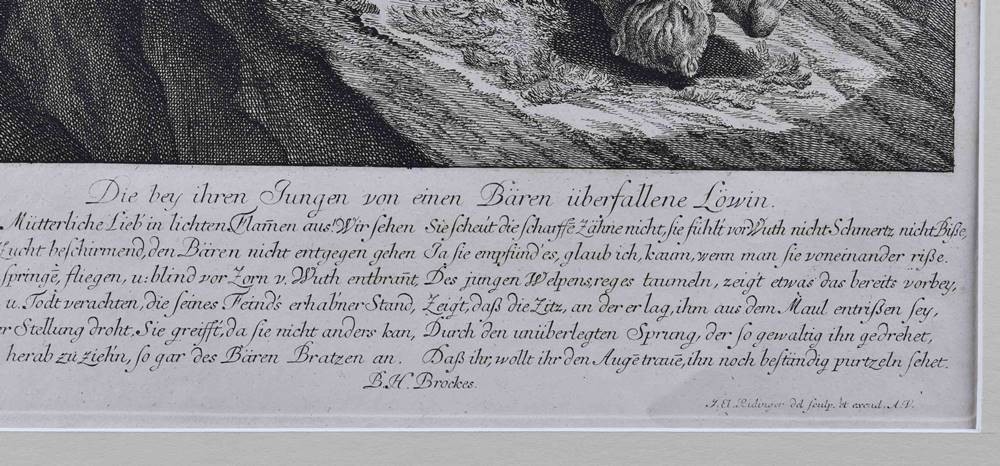 Die bey ihren Jungen von einen Bären überfallene Löwin.
Mütterliche Lieb' in lichten Flam̄en aus! Wir sehen
Zucht beschirmend, den Bären nicht entgegen gehen
springē, fliegen, u: blind vor Zorn v. Wuth entbran̄t,
u. Todt verachten, die seines Feinds erhabner Stand,
er Stellung droht. Sie greifft, da sie nicht anders kan,
herab zu zieh'n, so gar des Bären Bratzen an.
Sie scheüt die scharffē Zähne nicht, sie fühlt vor Wuth nicht Schmertz nicht Biße,
Ja sie empfünd' es, glaub ich, kaum, wenn man sie voneinander riße.
Des jungen Welpens, reges taumeln, zeigt etwas das bereits vorbey,
Zeigt, daß die Zitz, an der er lag, ihm aus dem Maul entrißen sey,
Durch den unüberlegten Sprung, der so gewaltig ihn gedrehet,
Daß ihr, wollt ihr den Augē trauē, ihn noch beständig purtzeln sehet.
B. H. Brockes.
J. El. Ridinger del. sculp. et excud. A. V.